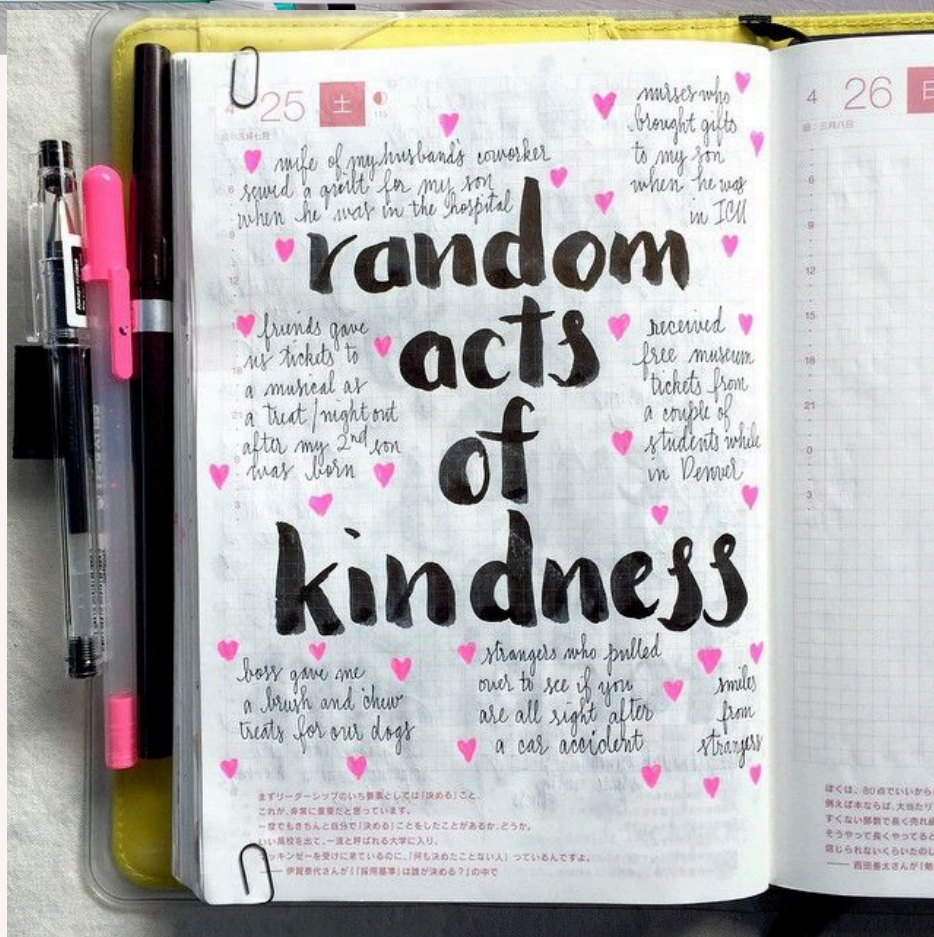 4 25 土
nurses who
brought gifts
to my son
when he was
in ICU
wife of my husband's coworker
sewed a quilt for my son
when he was in the hospital
random
acts
of
kindness
friends gave
us tickets to
a musical as
a treat/night out
after my 2nd son
was born
received
free museum
tickets from
a couple of
students while
in Denver
boss gave me
a brush and chew
treats for our dogs
strangers who pulled
over to see if you
are all right after
a car accident
smiles
from
strangers
まずリーダーシップのいち要素としては「決める」こと、
これが、非常に重要だと思っています。
一度でもきちんと自分で「決める」ことをしたことがあるか、どうか。
いい高校を出て、一流と呼ばれる大学に入り、
マッキンゼーを受けに来ているのに、「何も決めたことない人」っているんですよ。
—— 伊賀泰代さんが『「採用基準」は誰が決める?』の中で
4 26 日
9
12
15
18
21
0
3
ぼくは、80点でいいから
例えば本ならば、大当たり
すくない部数で長く売れ
そうやって長くやってると
信じられないくらいたのし